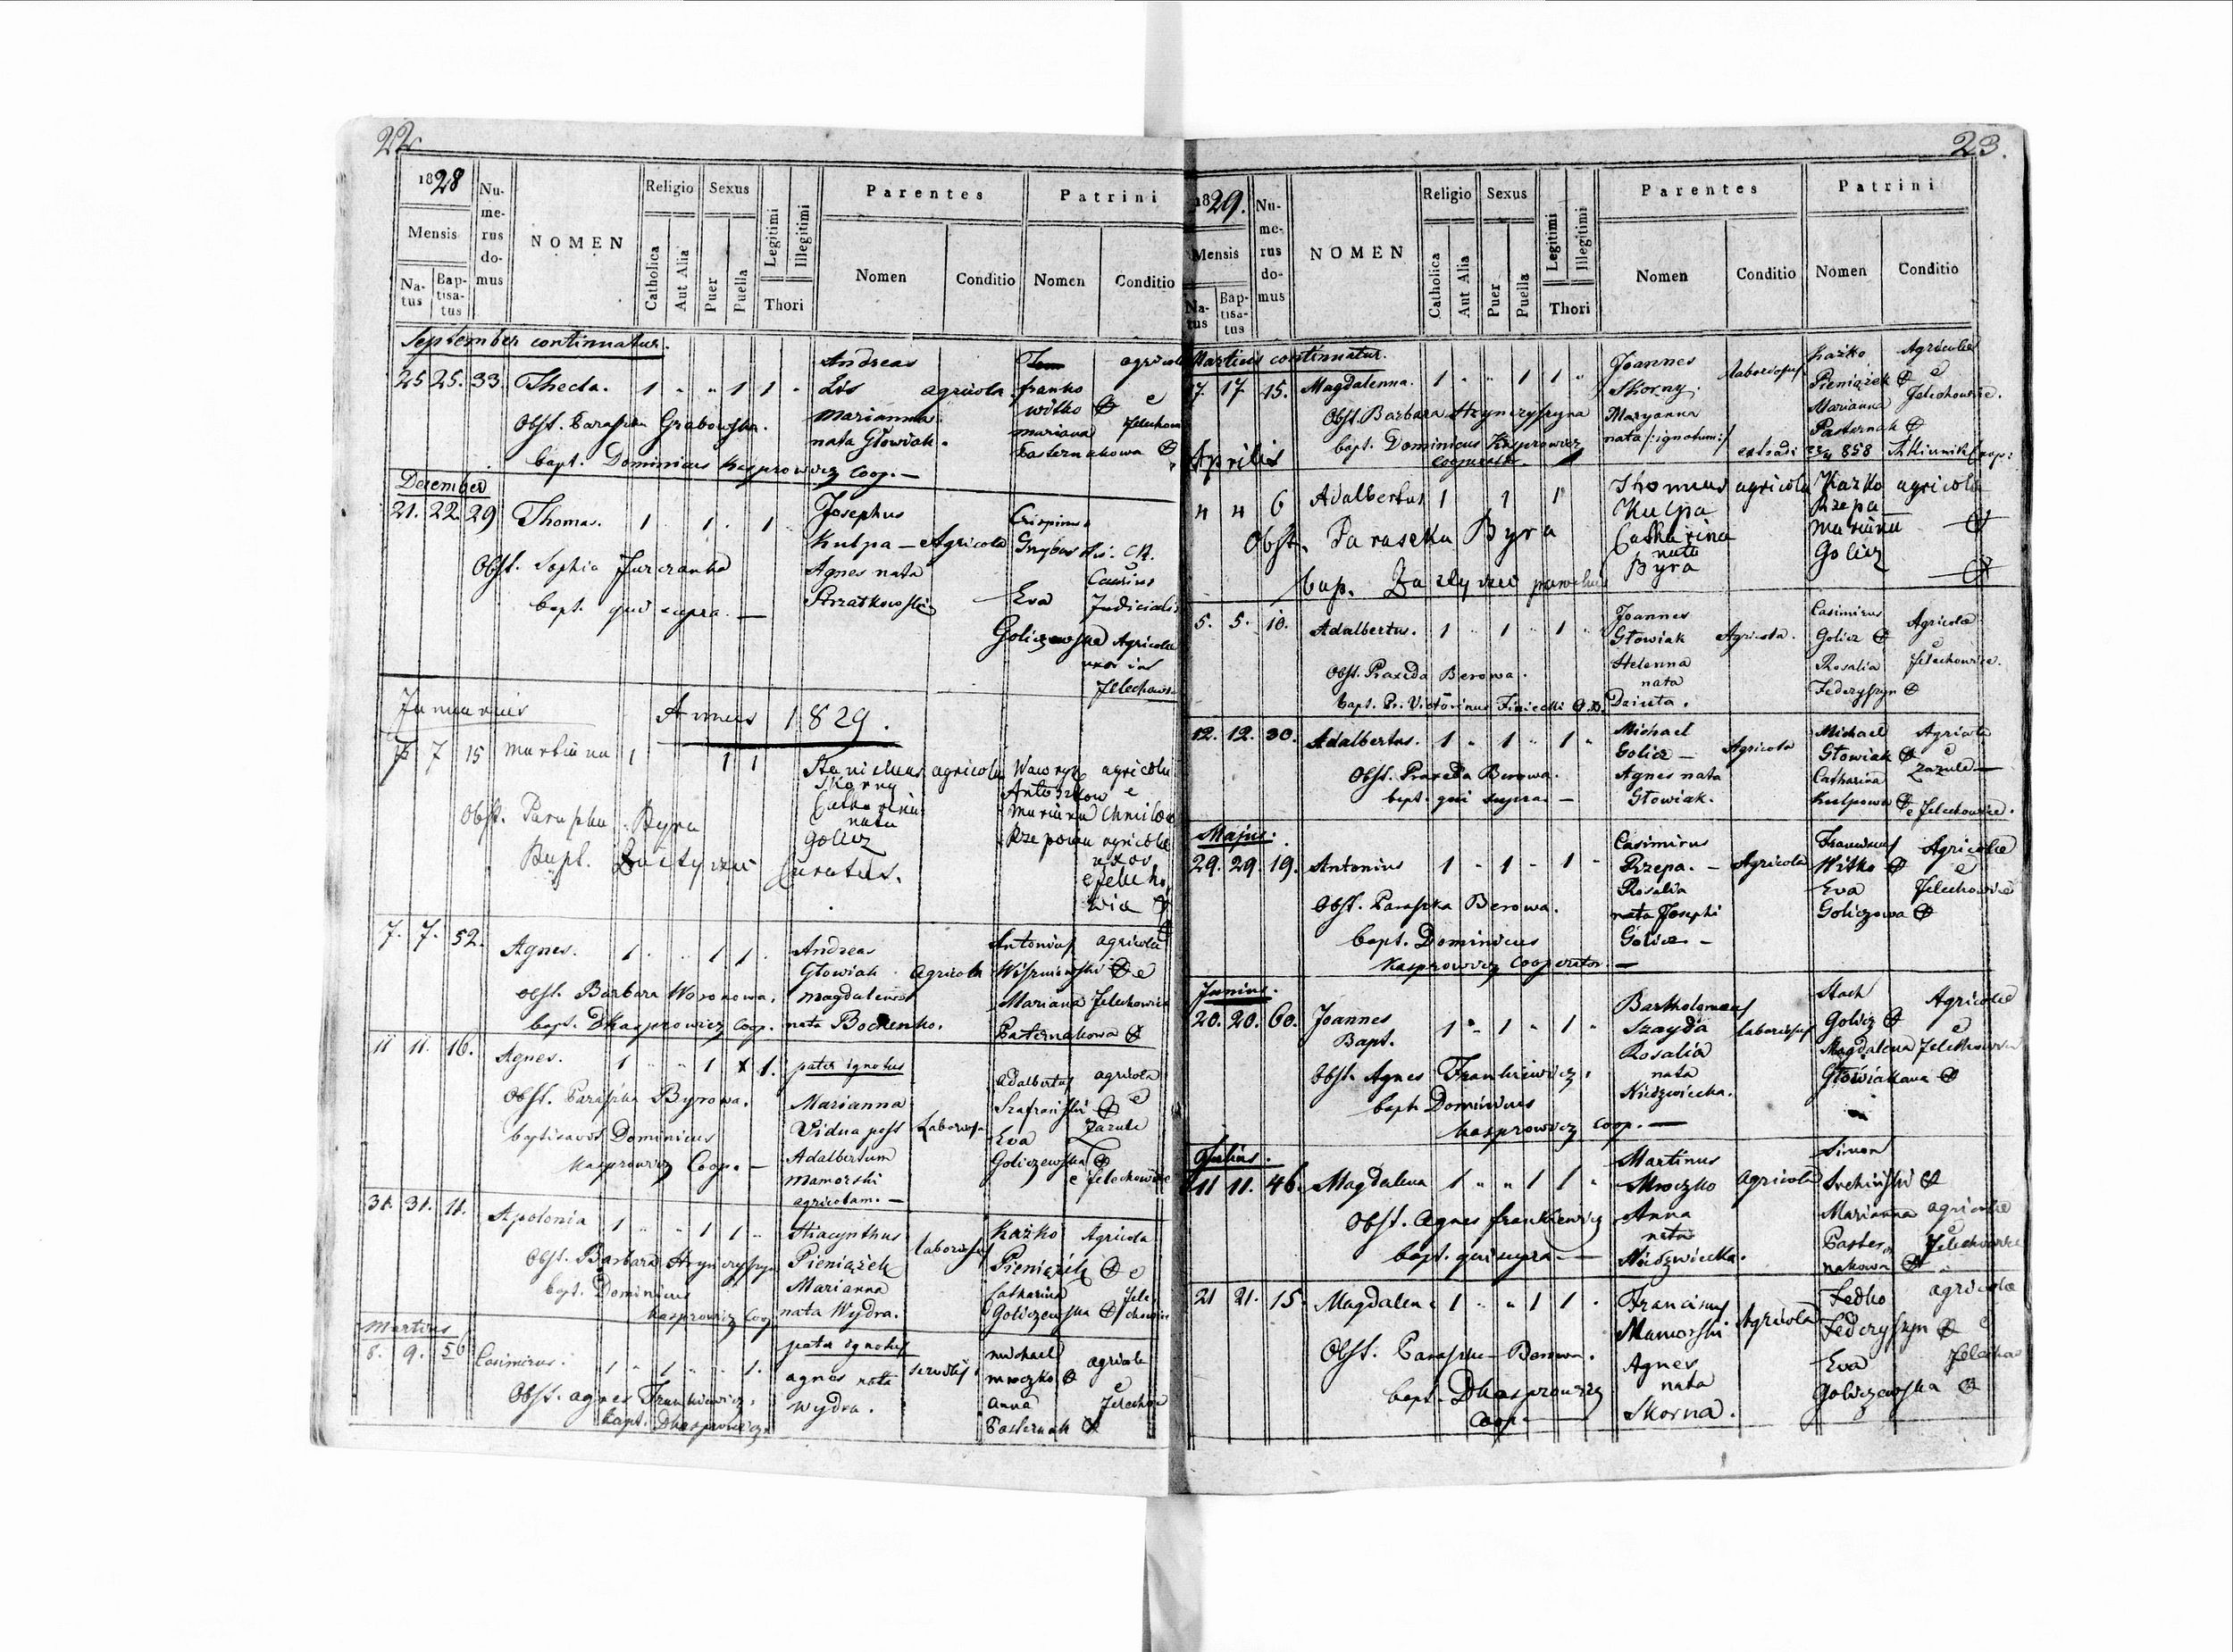 22.
1828
Numerus domus
NOMEN
Religio
Sexus
Legitimi
Illegitimi
Parentes
Patrini
Mensis
Catholica
Aut Alia
Puer
Puella
Thori
Nomen
Conditio
Nomen
Conditio
Natus
Baptisatus
September continuatur.
25 25. 33. Thecla. 1 " " 1 1 "
Andreas
Lis agricola
Marianna
nata Głowiak.
franko
witko
mariana
Pasternakowa
Obst. Paraska Grabowska.
bapt. Dominicus Kasprowicz Coop. —
December
21. 22. 29 Thomas. 1 . 1 . 1
Josephus
Kulpa — Agricola
Agnes nata
Crispinus
Eva
Goliczewska Agricola
Obst. Sophia Jurczanka
bapt. qui supra. —
Januarius
Annus 1829.
7 7 15 Martiana 1 1 1
agricola
Skorny
Catharina
nata
Golicz
Obst. Paraska Byra
Bapt. Curatus.
7. 7. 52. Agnes. 1 . . 1 1 .
Andreas
Głowiak agricola
Magdalena
nata Bochenko.
Antonius agricola
Wiszniewski e
Mariana Jelechowice
Pasternakowa
Obst. Barbara Woronowa.
bapt. DKasprowicz Coop.
11 11. 16. Agnes. 1 " " 1 x 1.
pater ignotus
Marianna
Vidua post
Adalbertum
Mamorski
agricolam. —
Adalbertus agricola
Szafrański e
Eva Zazule
Goliczewska
e Jelechowice
Obst. Paraska Byrowa.
baptisavit Dominicus
Kasprowicz Coop. —
31. 31. 11. Apolonia 1 " " 1 1 "
Hiacynthus
Pieniązek
Marianna
nata Wydra.
Każko Agricola
Pieniązek e
Catharina
Goliczewska
Obst. Barbara Hryńczyszyn
bapt. Dominicus
Kasprowicz Coop.
Martius
8. 9. 56 Casimirus. 1 " 1 " " 1.
pater ignotus
agnes nata
Wydra.
michael agricola
mroczko e
anna
Pasternak
Obst. agnes Frankiewicz.
bapt. DKasprowicz
23.
1829.
Numerus domus
NOMEN
Religio
Sexus
Legitimi
Illegitimi
Parentes
Patrini
Mensis
Catholica
Aut Alia
Puer
Puella
Thori
Nomen
Conditio
Nomen
Conditio
Natus
Baptisatus
Martius continuatur.
17. 17. 15. Magdalenna. 1 " " 1 1 "
Joannes
Skorny.
Maryanna
nata /:ignotum:/
Każko Agricolae
Pieniązek e
Marianna Jelechowice.
Pasternak
Obst. Barbara Hrynczyszyna
bapt. Dominicus Kasprowicz
Cooperator.
Aprilis
4 4 6 Adalbertus 1 1 1
Thomas agricola
Kulpa
Catharina
nata
Byra
Kazko agricola
Rzepa
Mariana
Golicz
Obst. Paraszka Byra
bap.
5. 5. 10. Adalbertus. 1 " 1 " 1 "
Joannes
Głowiak Agricola.
Helenna
nata
Dziuta.
Casimirus Agricolae
Golicz e
Rosalia Jelechowice.
Federyszyn
Obst. Praxeda Berowa.
bapt. Pr. Victorinus
12. 12. 30. Adalbertus. 1 " 1 " 1 "
Michael
Golicz — Agricola
Agnes nata
Głowiak.
Michael Agricola
Głowiak e
Catharina Zazule —
Kulpowa e Jelechowice.
Obst. Praxeda Berowa.
bapt. qui supra. —
Majus:
29. 29. 19. Antonius 1 " 1 " 1 "
Casimirus
Rzepa. — Agricola
Rosalia
nata Josephi
Golicz. —
Franciscus Agricolae
Witko e
Eva Jelechowice
Goliczowa
Obst. Paraska Berowa.
bapt. Dominicus
Kasprowicz Cooperator. —
Junius.
20. 20. 60. Joannes
Bapt. 1 " 1 " 1 "
Bartholomeus
Szayda laboriosus
Rosalia
nata
Niedzwiecka.
Stach Agricolae
Golicz e
Magdalena
Głowiakowa
Obst. Agnes Frankiewicz.
bapt. Dominicus
Kasprowicz Coop. —
Julius.
11 11. 46. Magdalena 1 " " 1 1 "
Martinus
Mroczko Agricola
Anna
nata
Niedzwiecka.
Simon
Marianna agricolae
Pasternakowa
Obst. Agnes frankiewicz
bapt. qui supra —
21 21. 15. Magdalena 1 " " 1 1 "
Franciscus
Mamorski Agricola
Agnes
nata
Skorna.
Fedko agricolae
Federyszyn e
Eva
Goliczewska
Obst. Paraska Berowa.
bapt. DKasprowicz
Coop. —